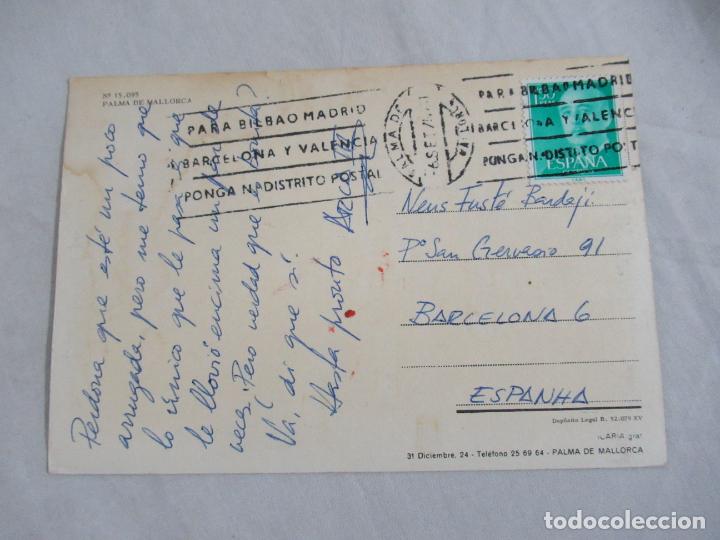 Nº 15.095
PALMA DE MALLORCA
Perdona que esté un poco
arrugada, pero me temo que
lo único que le pasa es que
le llovió encima un par de
veces. Pero verdad que es bonita?
Va, di que sí.
Hasta pronto
PARA BILBAO MADRID
BARCELONA Y VALENCIA
PONGA N.DISTRITO POSTAL
PALMA DE
6 SET 7
PARA BILBAO MADRID
BARCELONA Y VALENC
PONGA N.DISTRITO POSTA
ESPAÑA
Neus Fusté Bardají
Pº San Gervasio 91
BARCELONA 6
ESPANHA
Depósito Legal B. 52.079 XV
ICARIA graf
31 Diciembre, 24 - Teléfono 25 69 64 - PALMA DE MALLORCA
todocoleccion